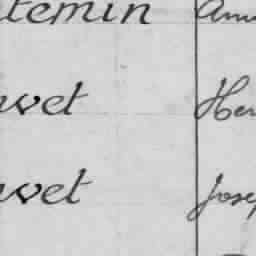 temin Ann
uvet Hen
uvet Josep